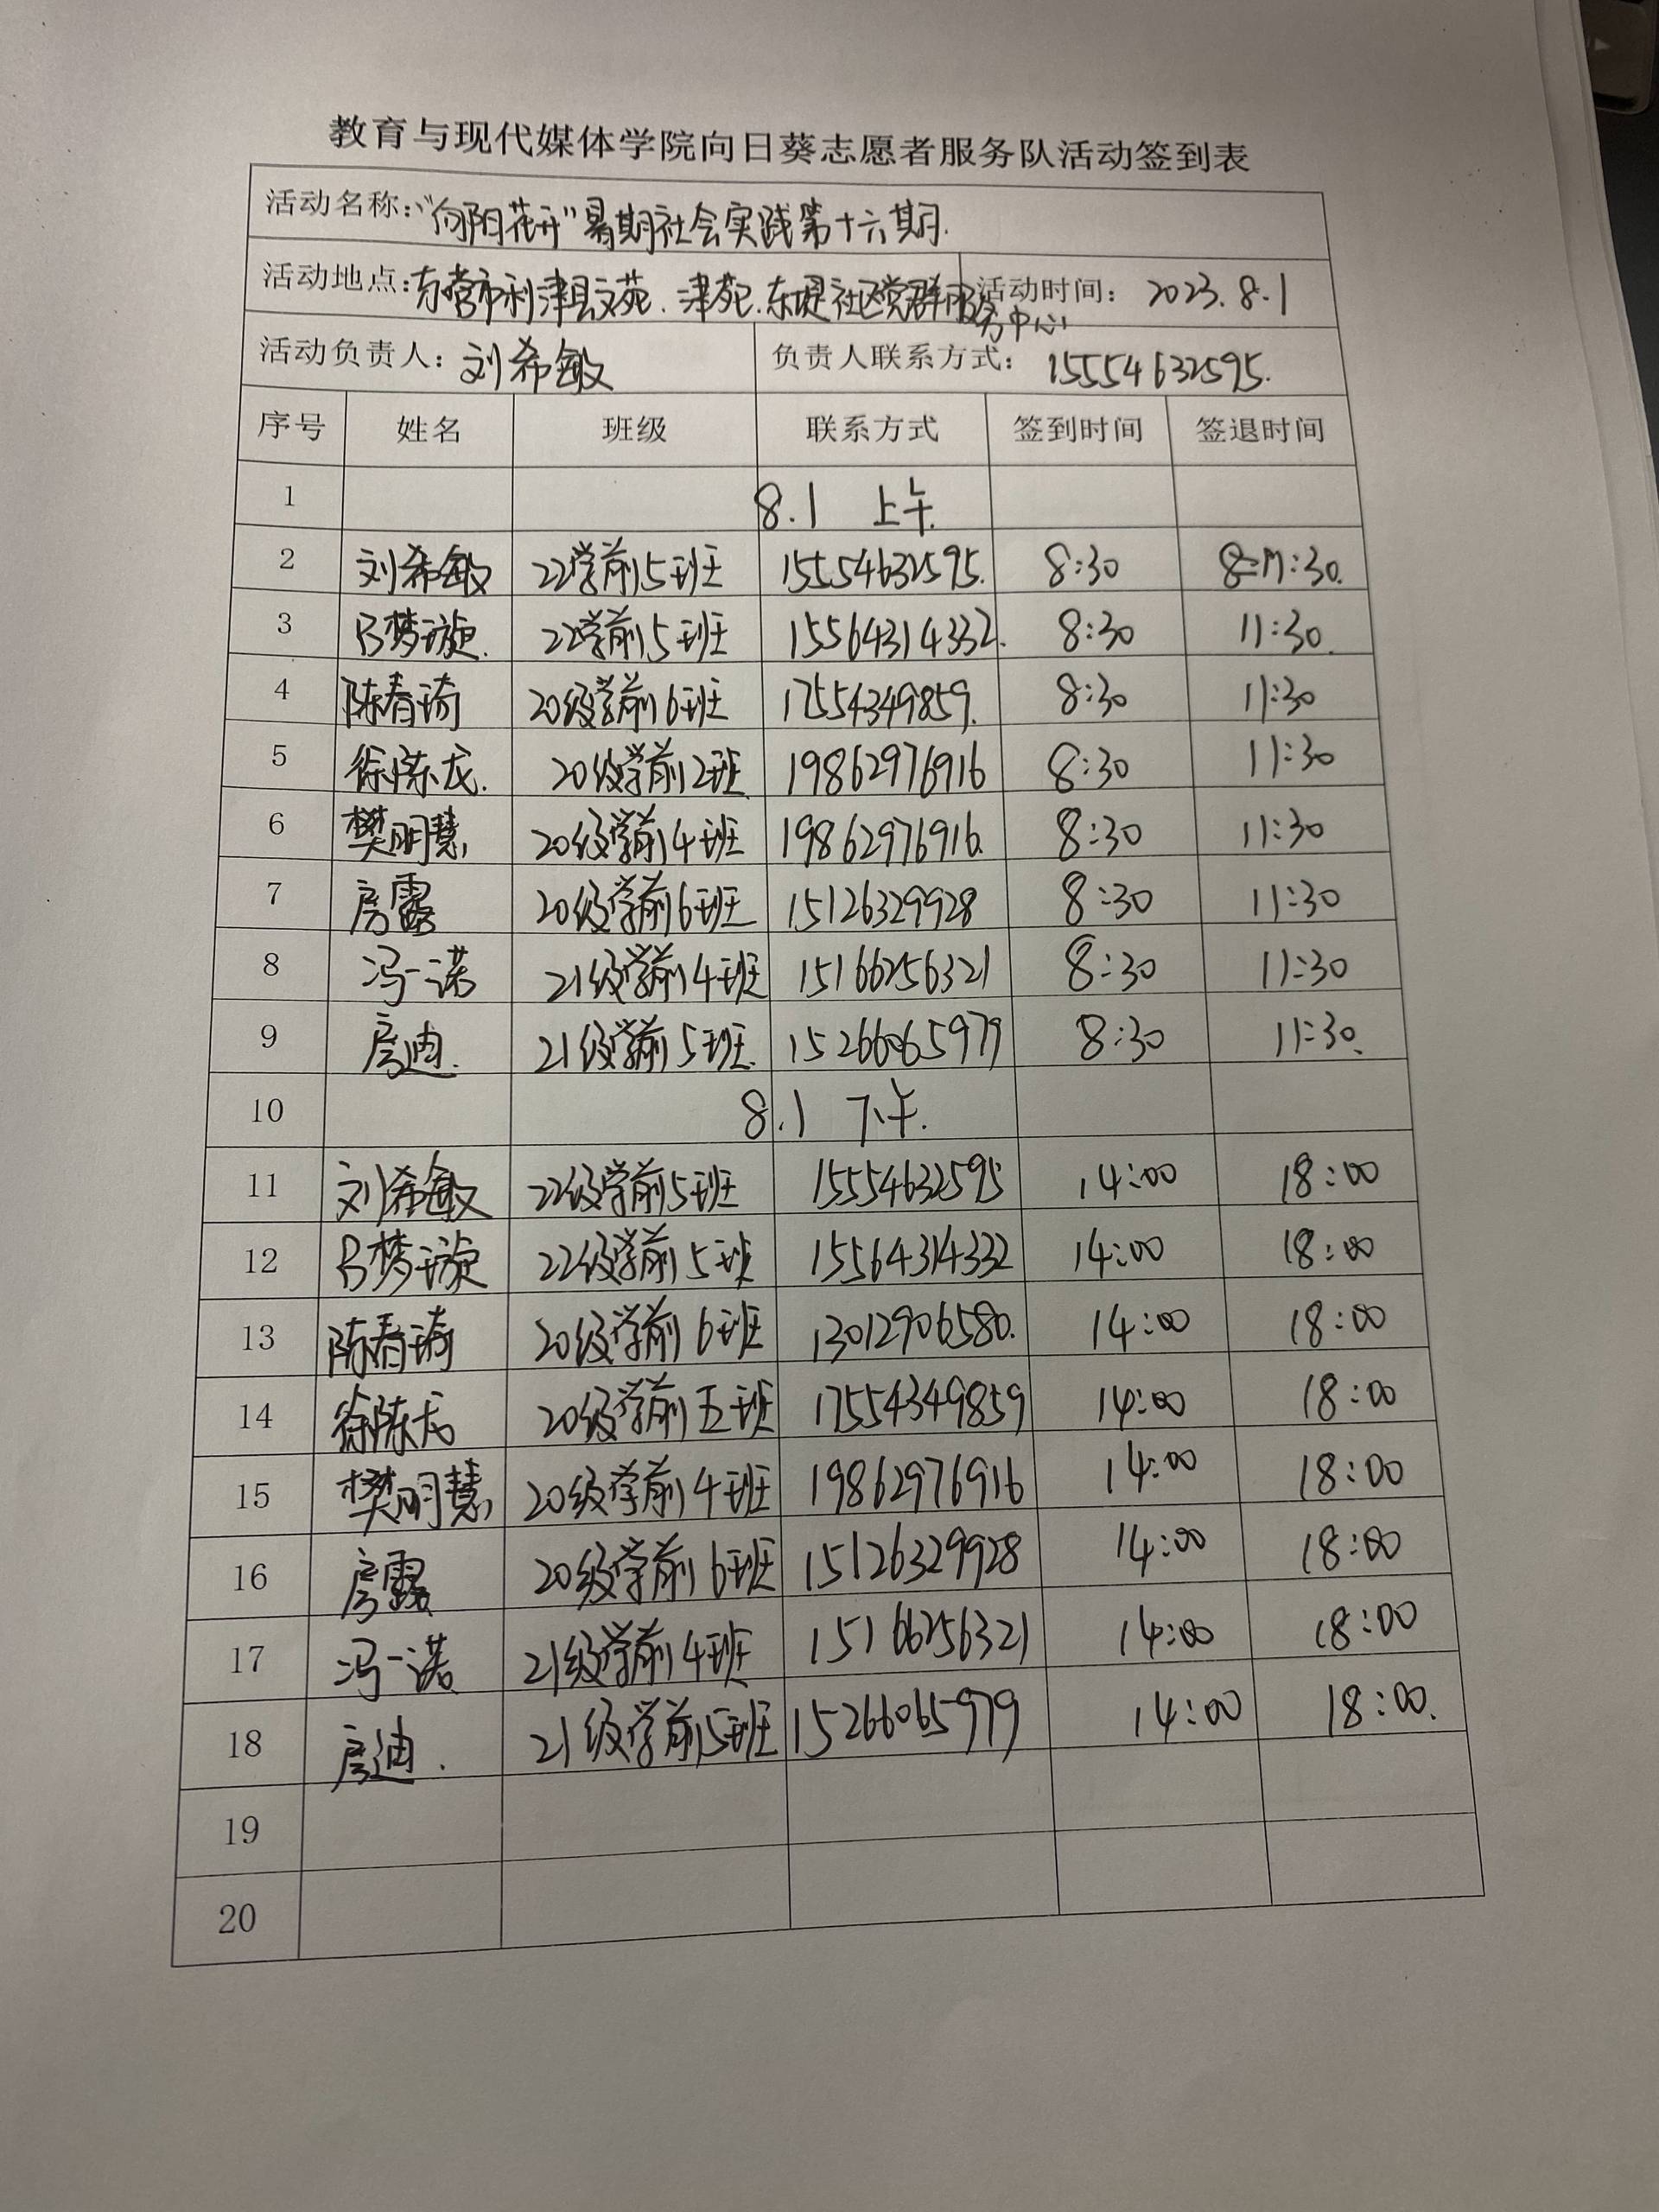 教育与现代媒体学院向日葵志愿者服务队活动签到表
活动名称:“向阳花开”暑期社会实践第十六期.
活动地点:东营市利津县文苑.津苑.东堤社区党群服务中心 活动时间: 2023.8.1
活动负责人: 刘希敏 负责人联系方式: 15554632595.
序号 姓名 班级 联系方式 签到时间 签退时间
1 8.1 上午.
2 刘希敏 22学前5班 15554632595. 8:30 :30.
3 梦璇. 22学前5班 15564314332. 8:30 11:30.
4 陈春琦 20级学前6班 17554349859. 8:30 11:30
5 徐陈龙. 20级学前2班 19862976916 8:30 11:30
6 樊明慧 20级学前4班 19862976916. 8:30 11:30
7 房露 20级学前6班 15126329928 8:30 11:30
8 冯一诺 21级学前4班 15166256321 8:30 11:30
9 房迪. 21级学前5班. 15266065979 8:30 11:30.
10 8.1 下午.
11 刘希敏 22级学前5班 15554632595 14:00 18:00
12 梦璇 22级学前5班 15564314332 14:00 18:00
13 陈春琦 20级学前6班 13012906580. 14:00 18:00
14 徐陈龙 20级学前五班 17554349859 14:00 18:00
15 樊明慧 20级学前4班 19862976916 14:00 18:00
16 房露 20级学前6班 15126329928 14:00 18:00
17 冯一诺 21级学前4班 15166256321 14:00 18:00
18 房迪. 21级学前5班 15266065979 14:00 18:00.
19
20